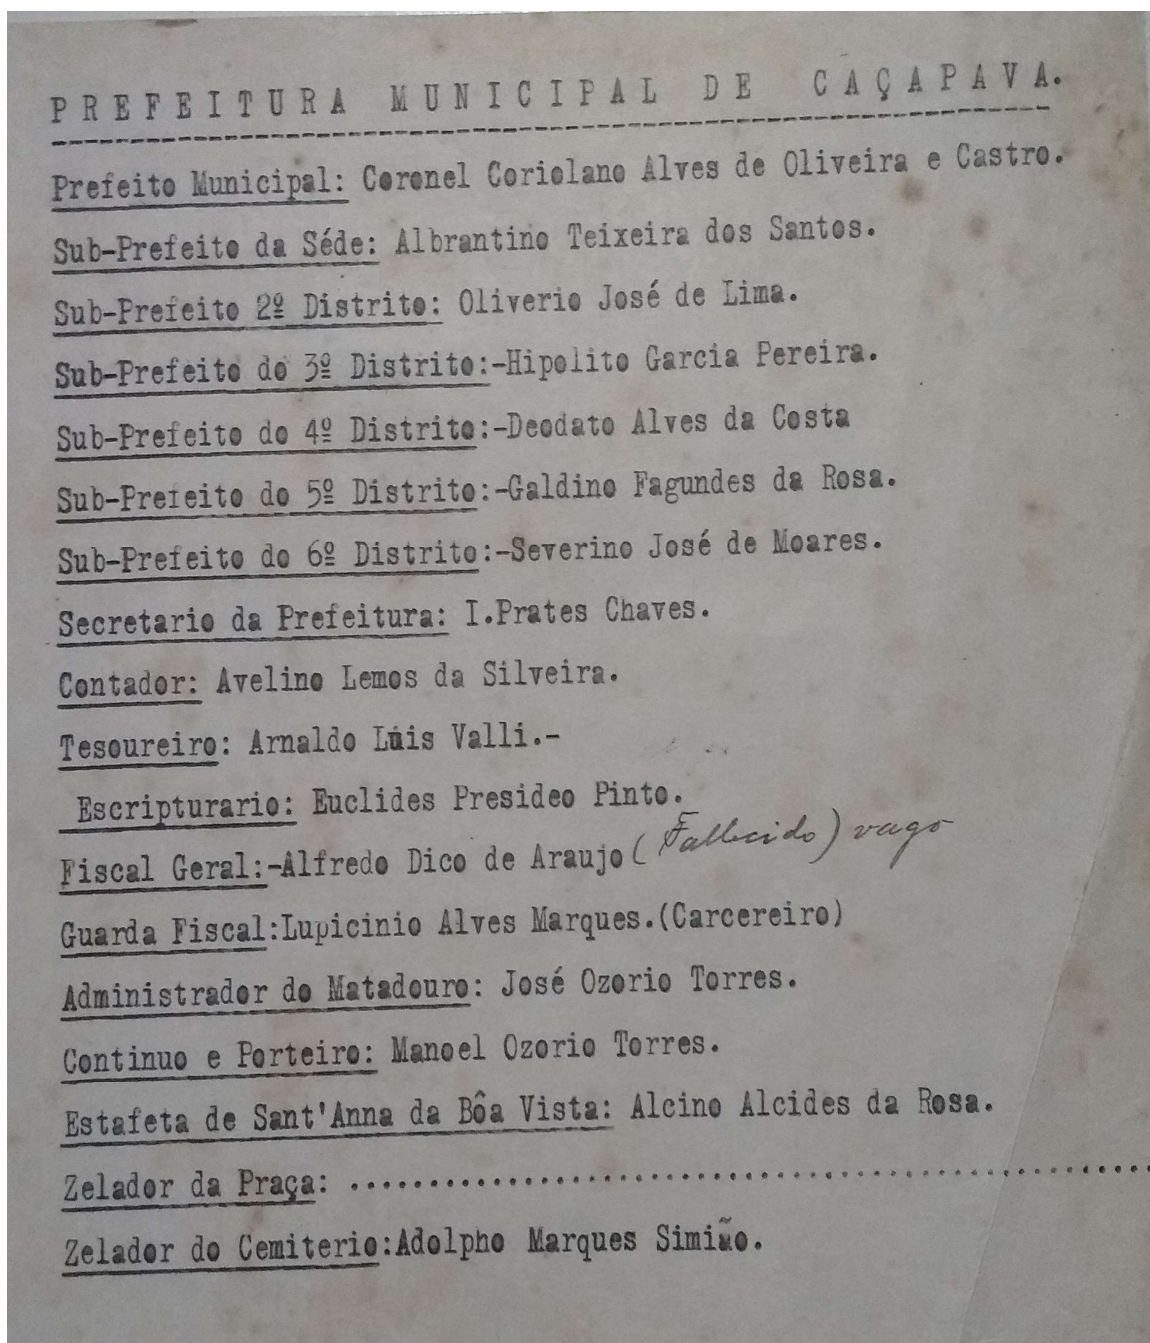 PREFEITURA MUNICIPAL DE CAÇAPAVA.
Prefeito Municipal: Coronel Coriolano Alves de Oliveira e Castro.
Sub-Prefeito da Séde: Albrantino Teixeira dos Santos.
Sub-Prefeito 2º Distrito: Oliverio José de Lima.
Sub-Prefeito do 3º Distrito:-Hipolito Garcia Pereira.
Sub-Prefeito do 4º Distrito:-Deodato Alves da Costa
Sub-Prefeito do 5º Distrito:-Galdino Fagundes da Rosa.
Sub-Prefeito do 6º Distrito:-Severino José de Moares.
Secretario da Prefeitura: I.Prates Chaves.
Contador: Avelino Lemos da Silveira.
Tesoureiro: Arnaldo Luis Valli.-
Escripturario: Euclides Presideo Pinto.
Fiscal Geral:-Alfredo Dico de Araujo (Fallecido) vago
Guarda Fiscal:Lupicinio Alves Marques.(Carcereiro)
Administrador do Matadouro: José Ozorio Torres.
Continuo e Porteiro: Manoel Ozorio Torres.
Estafeta de Sant'Anna da Bôa Vista: Alcino Alcides da Rosa.
Zelador da Praça: ....................................................
Zelador do Cemiterio:Adolpho Marques Simião.